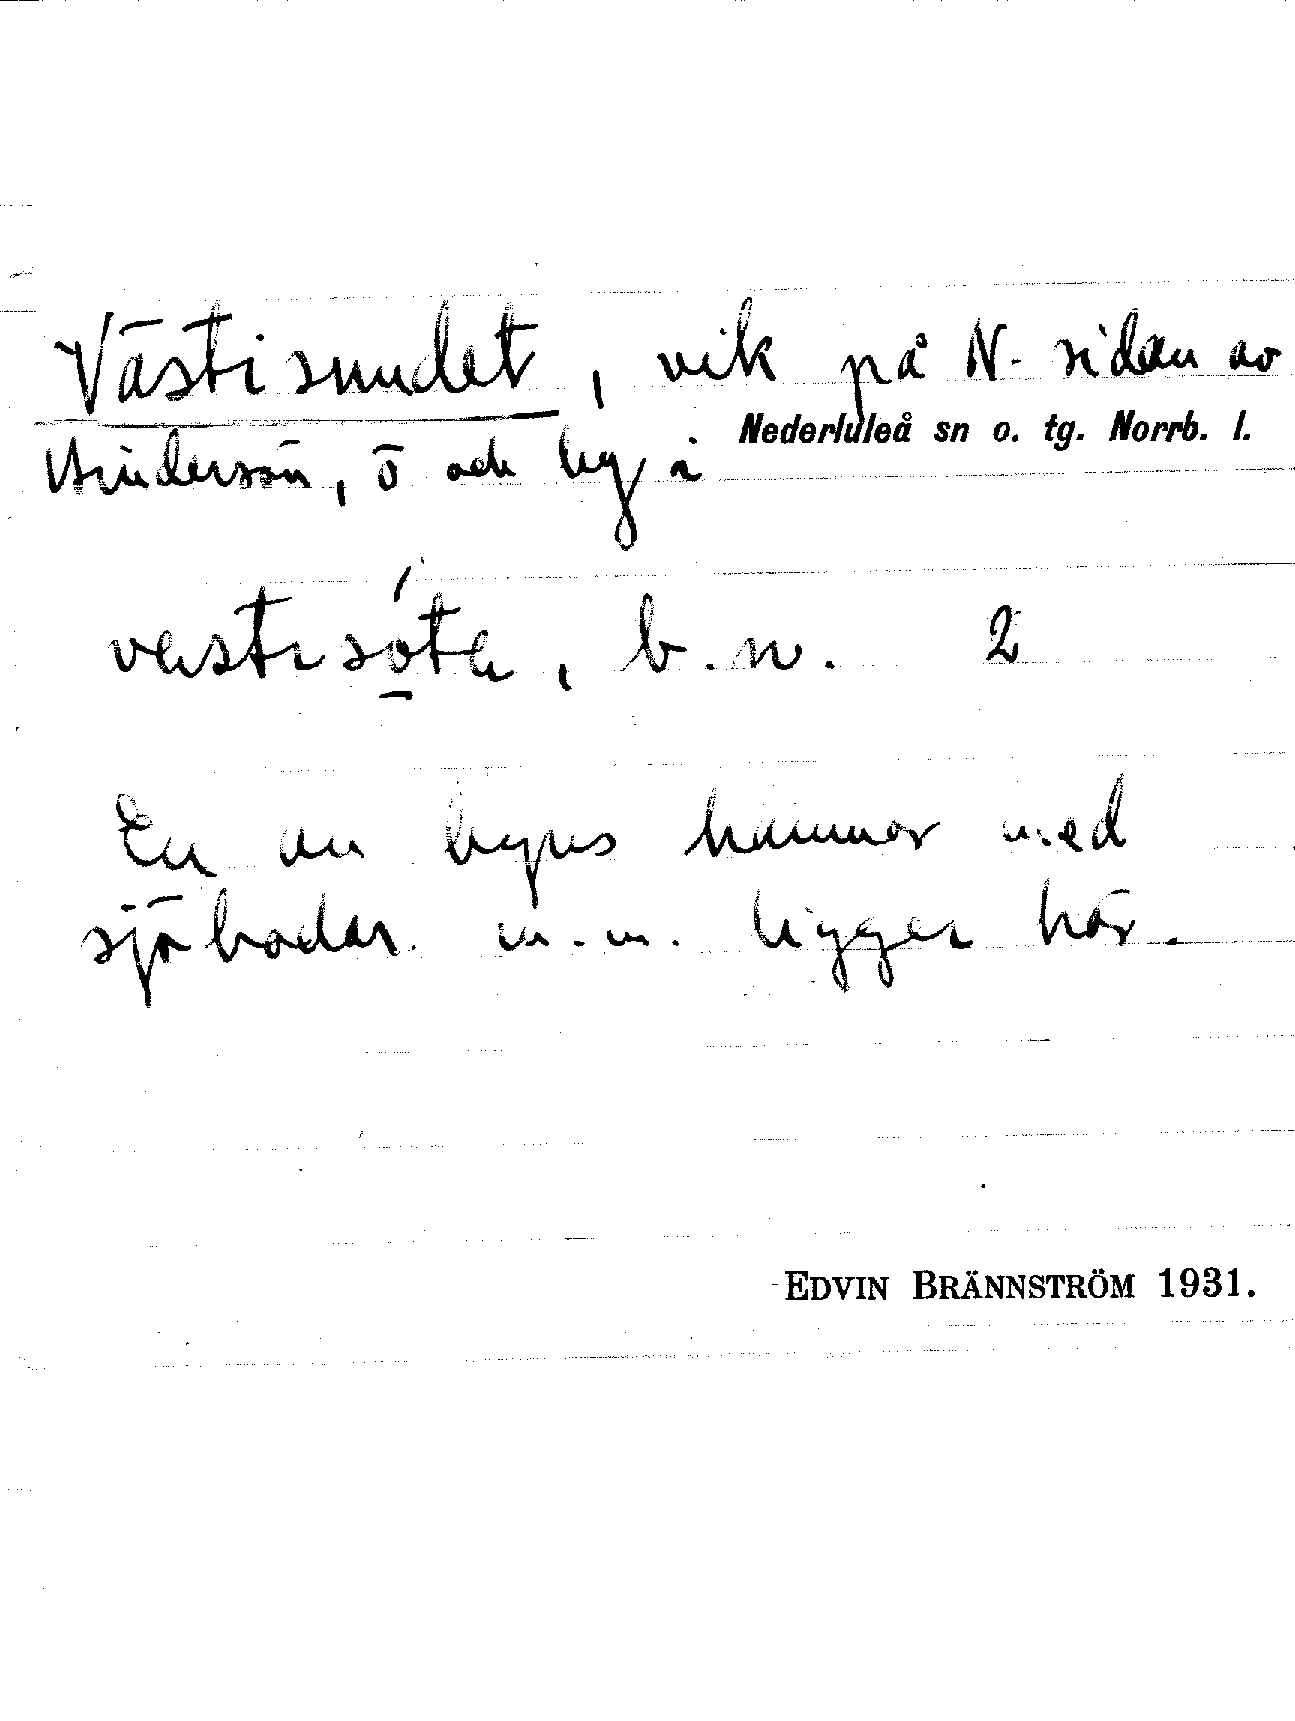 Västisundet, vik på N-sidan av
Hindersön, ö och by i Nederluleå sn o. tg. Norrb. l.
vestisote, b.n. 2
En av byns hamnar med
sjöbodar m.m. ligger här.
EDVIN BRÄNNSTRÖM 1931.